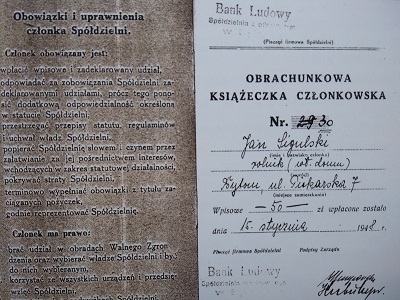 Obowiązki i uprawnienia
członka Spółdzielni.
Członek obowiązany jest:
wpłacić wpisowe i zadeklarowany udział,
odpowiadać za zobowiązania Spółdzielni zadeklarowanymi udziałami, prócz tego ponosić dodatkową odpowiedzialność określoną
w statucie Spółdzielni,
przestrzegać przepisy statutu, regulaminów
i uchwał władz Spółdzielni,
popierać Spółdzielnię słowem i czynem przez
załatwianie za jej pośrednictwem interesów,
wchodzących w zakres statutowej działalności,
pokrywać straty Spółdzielni,
terminowo wypełniać obowiązki z tytułu zaciągniętych pożyczek,
godnie reprezentować Spółdzielnię,
Członek ma prawo:
brać udział w obradach Walnego Zgromadzenia oraz wybierać władze Spółdzielni i być
do nich wybieranym,
korzystać ze wszystkich urządzeń i przedsię-
Bank Ludowy
Spółdzielnia
(Pieczęć firmowa Spółdzielni)
OBRACHUNKOWA
KSIĄŻECZKA CZŁONKOWSKA
Nr.
Jan
(imię i nazwisko członka)
rolnik
ul.
7
(miejsce zamieszkania)
Wpisowe —50— zł wpłacone zostało
dnia 15 stycznia 1948 r.
Pieczęć firmowa Spółdzielni Podpisy Zarządu
Bank Ludowy